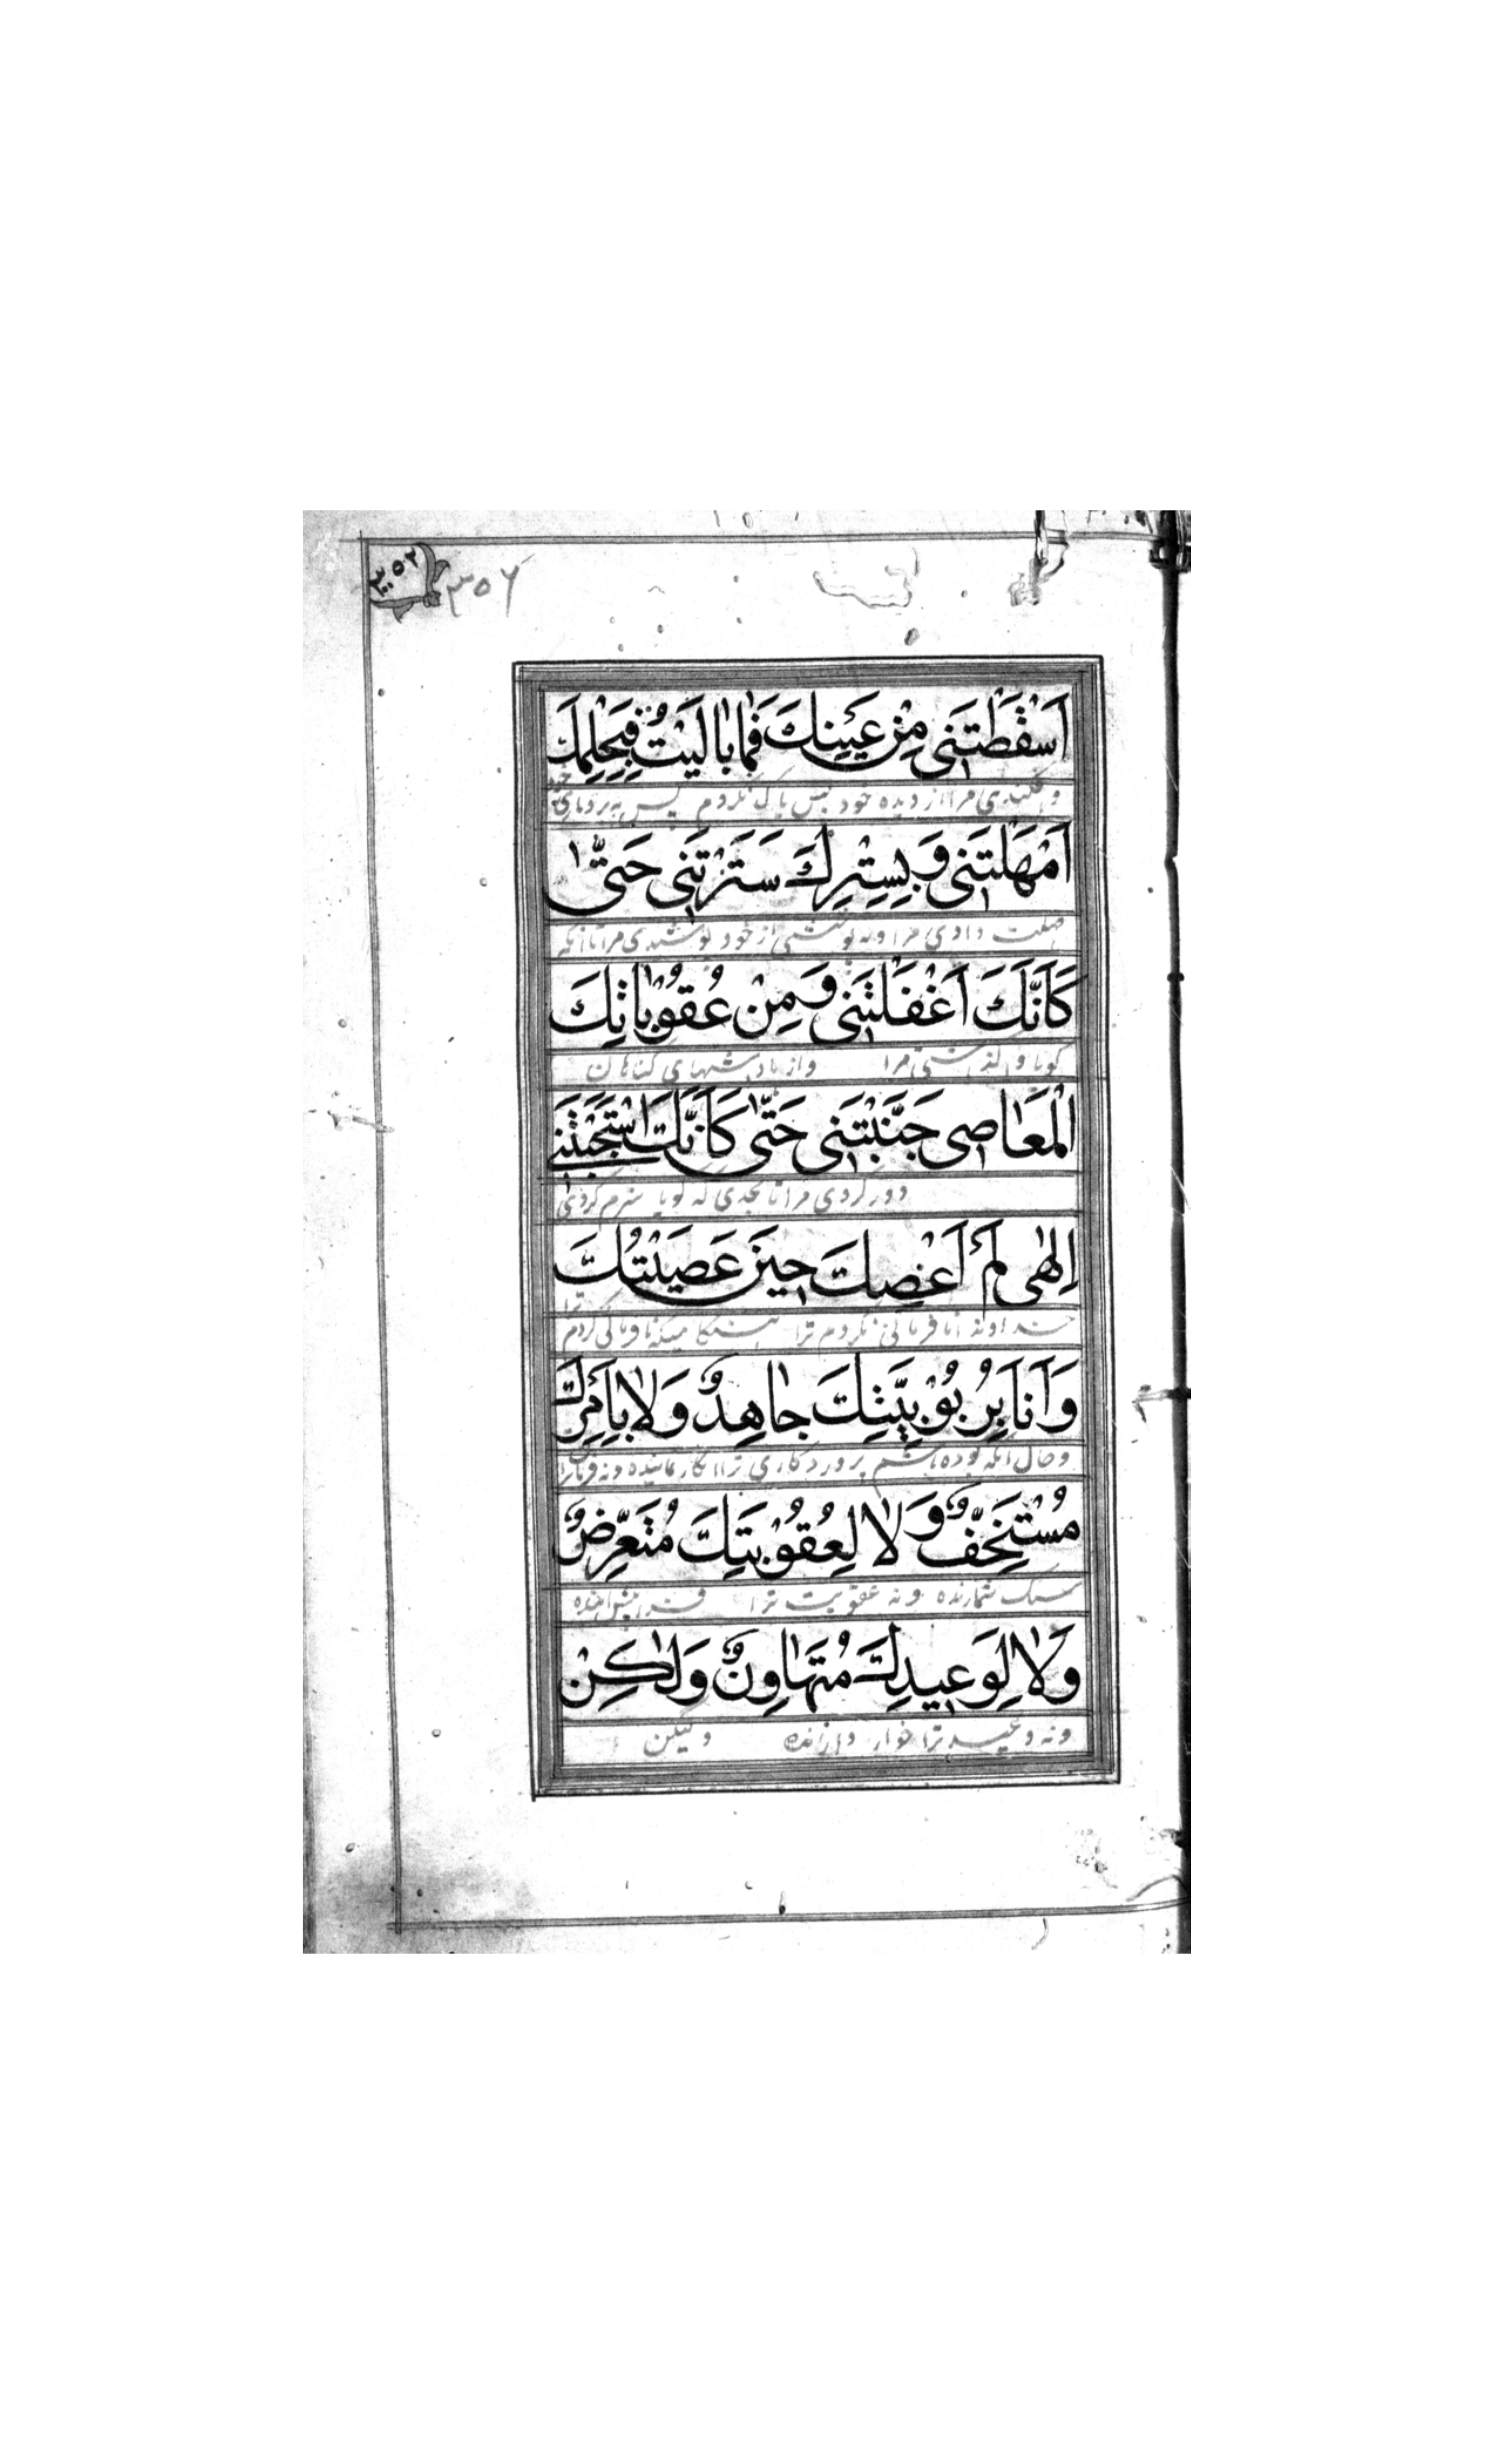 ٣٥٢ ٣٥٦
اَسْقَطْتَنی مِنْ عَیْنِكَ فَمٰا بٰالَیْتُ فَبِحِلْمِكَ
وافکندی مرا از دیده خود پس باک نکردم پس به بردباری خود
اَمْهَلْتَنی وَ بِسِتْرِكَ سَتَرْتَنی حَتّٰی
مهلت دادی مرا و به پوشش از خود پوشیدی مرا تا آنکه
كَاَنَّكَ اَغْفَلْتَنی وَ مِنْ عُقُوبٰاتِكَ
گویا مرا و از پاداشهای گناهان
الْمَعٰاصی جَنَّبْتَنی حَتّٰی كَاَنَّكَ اسْتَحْیَیْتَنی
دور کردی مرا تا بحدی که گویا شرم کردی
اِلٰهی لَمْ اَعْصِكَ حینَ عَصَیْتُكَ
خداوندا نافرمانی نکردم ترا کردم ترا
وَ اَنَا بِرُبُوْبِیَّتِكَ جٰاهِدٌ وَ لاٰ بِاَمْرِكَ
وحال آنکه بوده باشم پروردکاری ترا انکار نماینده و نه فرمان ترا
مُسْتَخِفٌّ وَ لاٰ لِعُقُوْبَتِكَ مُتَعَرِّضٌ
سبک شمارنده و نه عقوبت ترا
وَ لاٰ لِوَعیدِكَ مُتَهٰاوِنٌ وَ لٰكِنْ
و نه وعید ترا خوار دارنده ولیکن